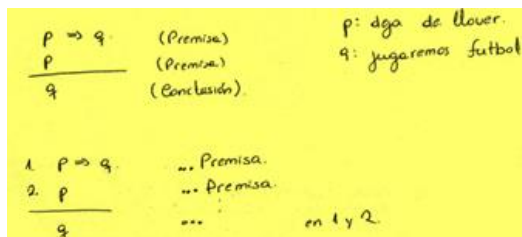 p ⇒ q. (Premisa)
p (Premisa)
q (Conclusión).
p: dga de llover.
q: jugaremos futbol
1. p ⇒ q. ... Premisa.
2. p ... Premisa.
q ... en 1 y 2.